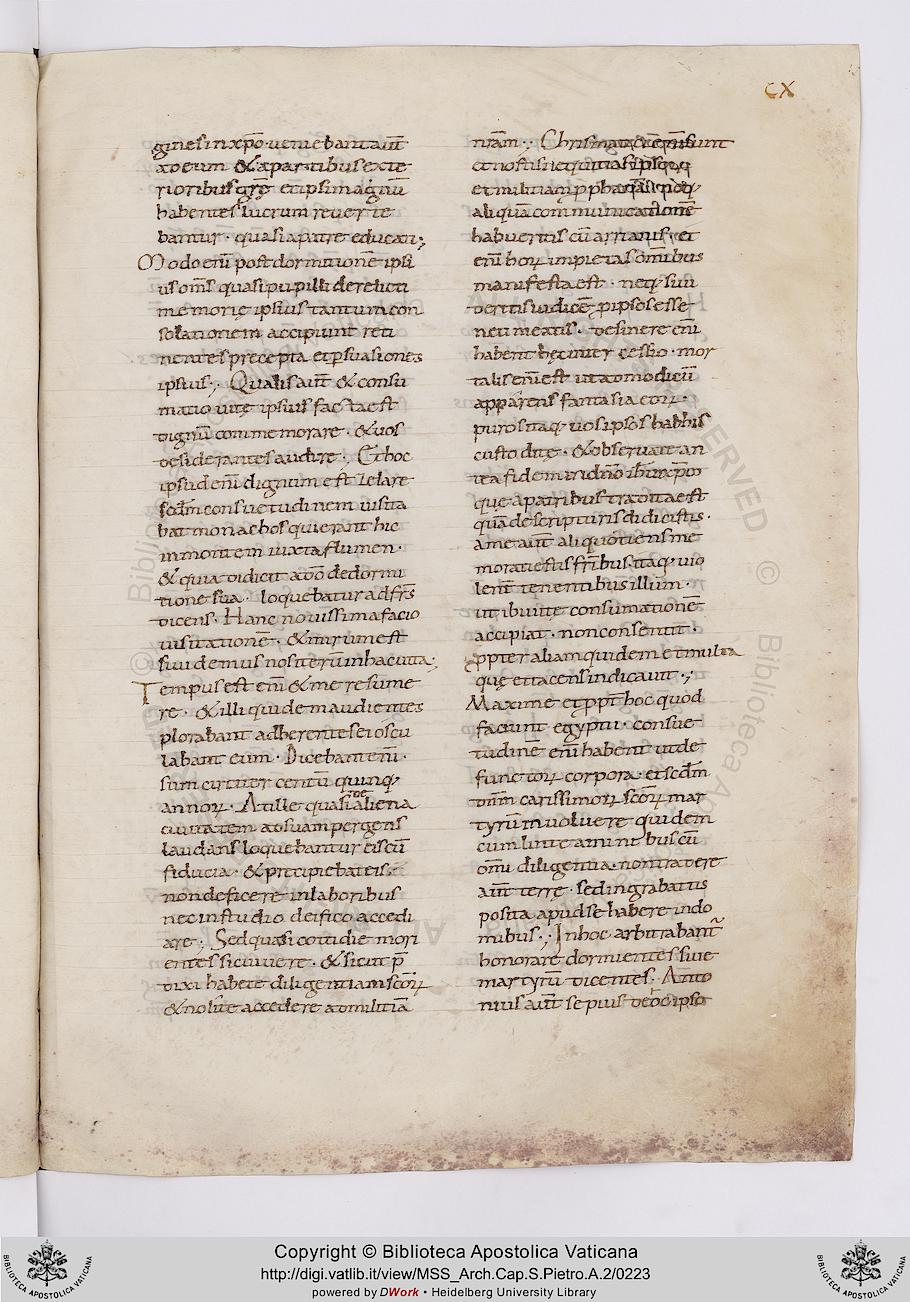 CX
gines in xpo. veniebant aut
ad eum & a partibus exte
rioribus gre et ipsi magnu
habentes lucrum reverte
bantur. quasi a patre educati;
Modo eni post dormitione ipsi
us oms quasi pupilli derelicti
memorie ipsius tantum con
solationem accipiunt reti
nentes precepta et psuasiones
ipsius; Qualis aut & consu
matio vite ipsius facta est
dignu commemorare. & vos
desiderantes audire; Et hoc
ipsud eni dignum est zelare
scdm consuetudinem visita
bat monachos qui erant hic
in montem iuxta flumen.
& quia didicit a do de dormi
tione sua. loquebatur ad frs
dicens. Hanc novissima facio
visitatione. & mirum est
si videmus nos iteru in hac vita;
Tempus est eni & me resume
re. & illi quidem audientes
plorabant adherentes ei oscu
labant eum. Dicebant eni.
sum circiter centu quinq
annor. At ille quasi de aliena
civitatem ad suam pergens
laudans loquebantur eis cu
fiducia. & precipiebat eis.
non deficere in laboribus
nec in studio deifico accedi
are; Sed quasi cottidie mori
entes sic vivere. & sicut p
dixi habete diligentiam scor
& nolite accedere ad militia
nram; Chrismata
et nostis nequitias ipsor
et militiam
aliqua communicatione
habueritis cu arrianis. et
eni hor impietas omnibus
manifesta est. neq si vi
deritis iudice p ipsos esse
ne timeatis. desinere eni
habent hec inter cessio. mor
talis eni est ut ad modicu
apparens fantasia eor.
puros itaq vos ipsos
custodite. & observate an
tea fidem in dno ihu xpo
que a patribus tradita est
qua de scripturis didicistis.
a me aut aliquotiens me
morati estis fribus itaq vio
lent tenentibus illum.
ut ibi vite consumatione
accipiat. non consentit.
propter aliam quidem et multa
que et tacens indicavit;
Maxime et ppt hoc quod
faciunt egyptii. consue
tudine eni habent ut de
functor corpora. et scdm
dnm carissimor scor mar
tyru involvere quidem
cum linteaminibus cu
omi diligentia. non tradere
aut terre. sed in grabattis
posita apud se habere in do
mibus; In hoc arbitrabant
honorare dormientes sive
martyru dicentes. Anto
nius aut sepius de hoc ipso
Copyright © Biblioteca Apostolica Vaticana
http://digi.vatlib.it/view/MSS_Arch.Cap.S.Pietro.A.2/0223
powered by DWork • Heidelberg University Library